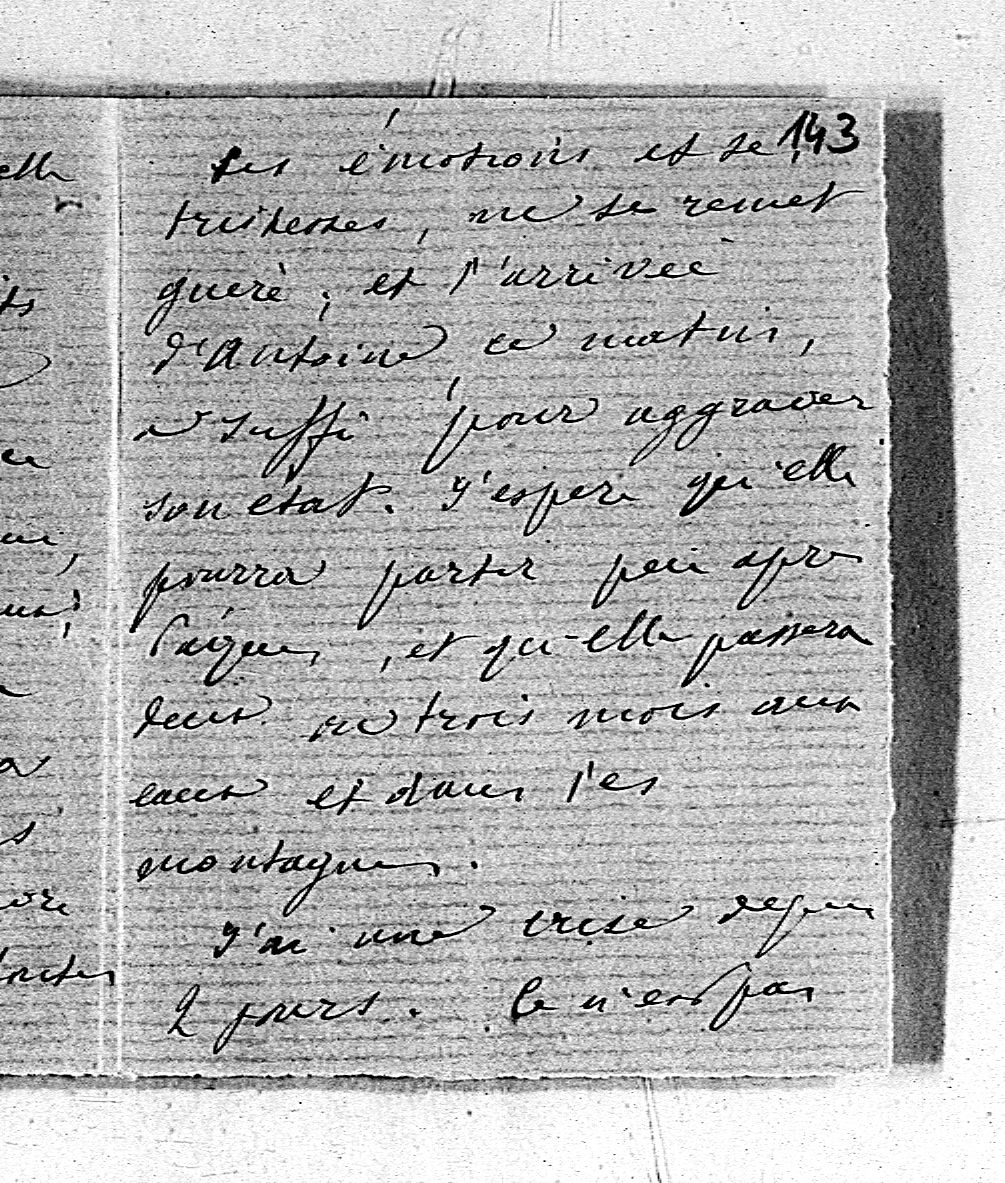 143
ses émotions et ses
tristesses, ne se remet
guère, et l'arrivée
d'Antoine ce matin,
a suffi pour aggraver
son état. J'espère qu'elle
pourra partir peu après
Pâques, et qu'elle passera
deux ou trois mois aux
eaux et dans les
montagnes.
J'ai une crise depuis
2 jours. Ce n'est pas